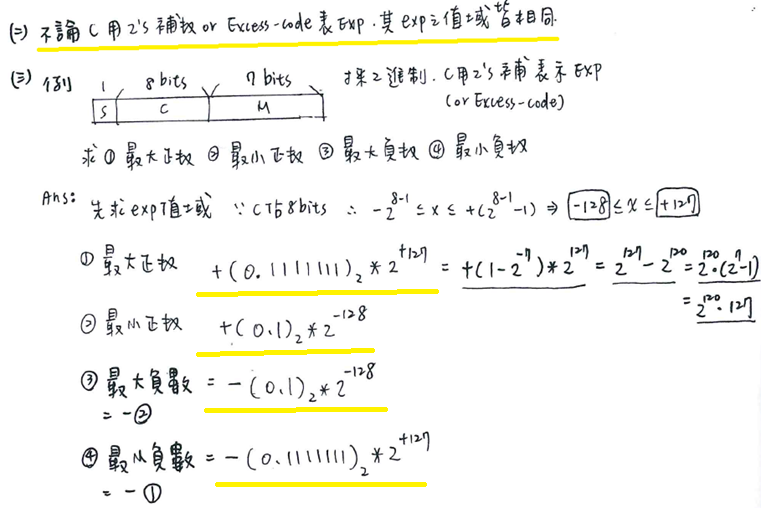 (二) 不論 C 用 2's 補數 or Excess-code 表 Exp. 其 exp 之值域皆相同.
(三) 例 1 8 bits 7 bits 採 2 進制. C 用 2's 補 表示 EXP
S C M (or Excess-code)
求 ① 最大正數 ② 最小正數 ③ 最大負數 ④ 最小負數
Ans: 先求 exp 值域 ∵ C 佔 8 bits ∴ -2^{8-1} ≤ x ≤ +(2^{8-1}-1) ⇒ -128 ≤ x ≤ +127
① 最大正數 +(0.1111111)₂ * 2^{+127} = +(1-2^{-7}) * 2^{127} = 2^{127} - 2^{120} = 2^{120}·(2^{7}-1)
= 2^{120}·127
② 最小正數 +(0.1)₂ * 2^{-128}
③ 最大負數 = -(0.1)₂ * 2^{-128}
= -②
④ 最小負數 = -(0.1111111)₂ * 2^{+127}
= -①